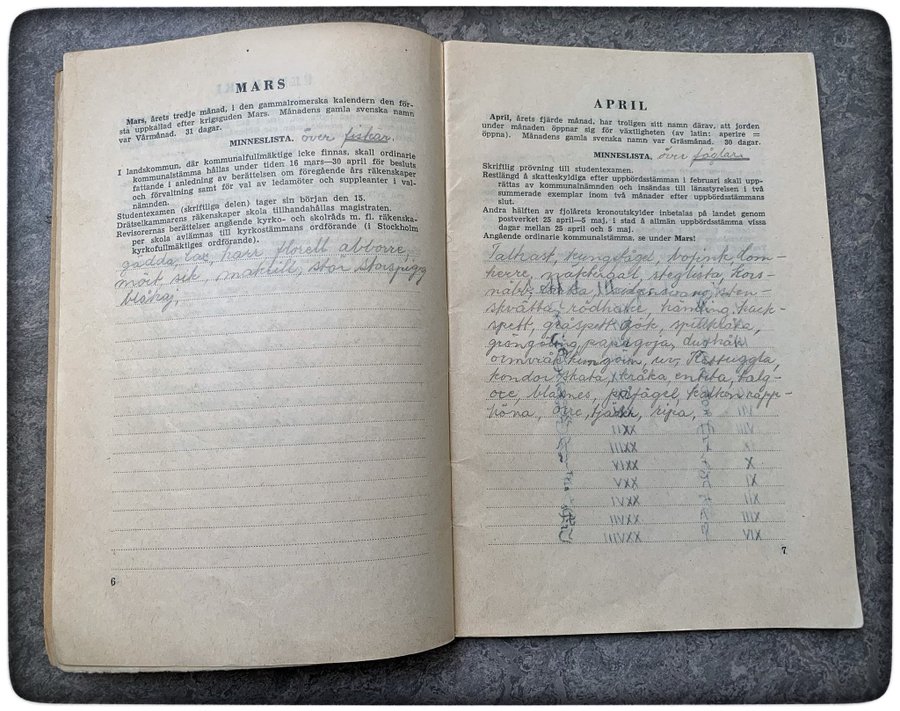 MARS
Mars, årets tredje månad, i den gammalromerska kalendern den för-
sta uppkallad efter krigsguden Mars. Månadens gamla svenska namn
var Vårmånad. 31 dagar.
MINNESLISTA. över fiskar.
I landskommun, där kommunalfullmäktige icke finnas, skall ordinarie
kommunalstämma hållas under tiden 16 mars—30 april för besluts
fattande i anledning av berättelsen om föregående års räkenskaper
och förvaltning samt för val av ledamöter och suppleanter i val-
nämnden.
Studentexamen (skriftliga delen) tager sin början den 15.
Drätselkammarens räkenskaper skola tillhandahållas magistraten.
Revisorernas berättelser angående kyrko- och skolråds m. fl. räkenska-
per skola avlämnas till kyrkostämmans ordförande (i Stockholm
kyrkofullmäktiges ordförande).
gädda, lax, harr, florell abborre,
mört, sik, makrill, stör storspigg
blåhaj,
6
APRIL
April, årets fjärde månad, har troligen sitt namn därav, att jorden
under månaden öppnar sig för växtligheten (av latin: aperire =
öppna). Månadens gamla svenska namn var Gräsmånad. 30 dagar.
MINNESLISTA. över fåglar
Skriftlig prövning till studentexamen.
Restlängd å skatteskyldiga efter uppbördsstämman i februari skall upp-
rättas av kommunalnämnden och insändas till länsstyrelsen i två
summerade exemplar inom två månader efter uppbördsstämmans
slut.
Andra hälften av fjolårets kronoutskylder inbetalas på landet genom
postverket 25 april—5 maj, i stad å allmän uppbördsstämma vissa
dagar mellan 25 april och 5 maj.
Angående ordinarie kommunalstämma, se under Mars!
Talltrast, kungsfågel, bofink, dom-
herre, näktergal, steglista, kors-
näbb, sten-
skvätta, rödhake, hack-
spett, gråspett, gök, spillkråka,
gröngöling, papegoja, duvhök
ormvråk, kungsörn, uv,
kondor skata, kråka, entita, talg-
oxe, blåmes, påfågel, kalkon rapp-
höna, orre, tjäder, ripa,
7